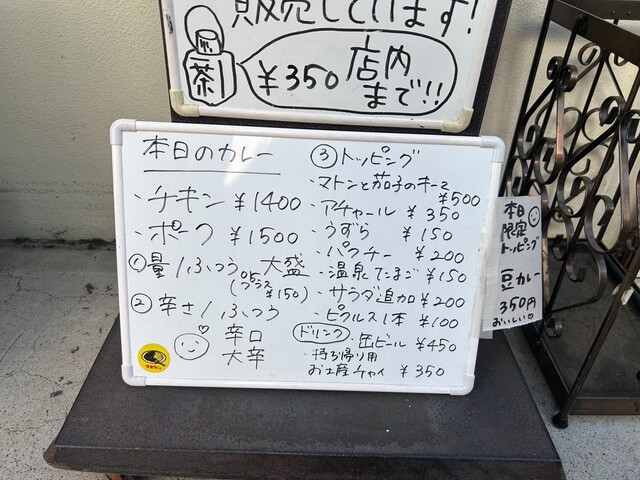 販売しています!
茶
¥350 店内
まで!!
本日のカレー
・チキン ¥1400
・ポーク ¥1500
①量/ふつう 大盛
(プラス
¥150)
②辛さ/ふつう
辛口
大辛
③トッピング
・マトンと茄子のキーマ
¥500
・アチャール ¥350
・うずら ¥150
・パクチー ¥200
・温泉たまご ¥150
・サラダ追加 ¥200
・ピクルス1本 ¥100
ドリンク ・缶ビール ¥450
・持ち帰り用
お土産チャイ ¥350
本日
限定
トッピング
豆カレー
350円
おいしい